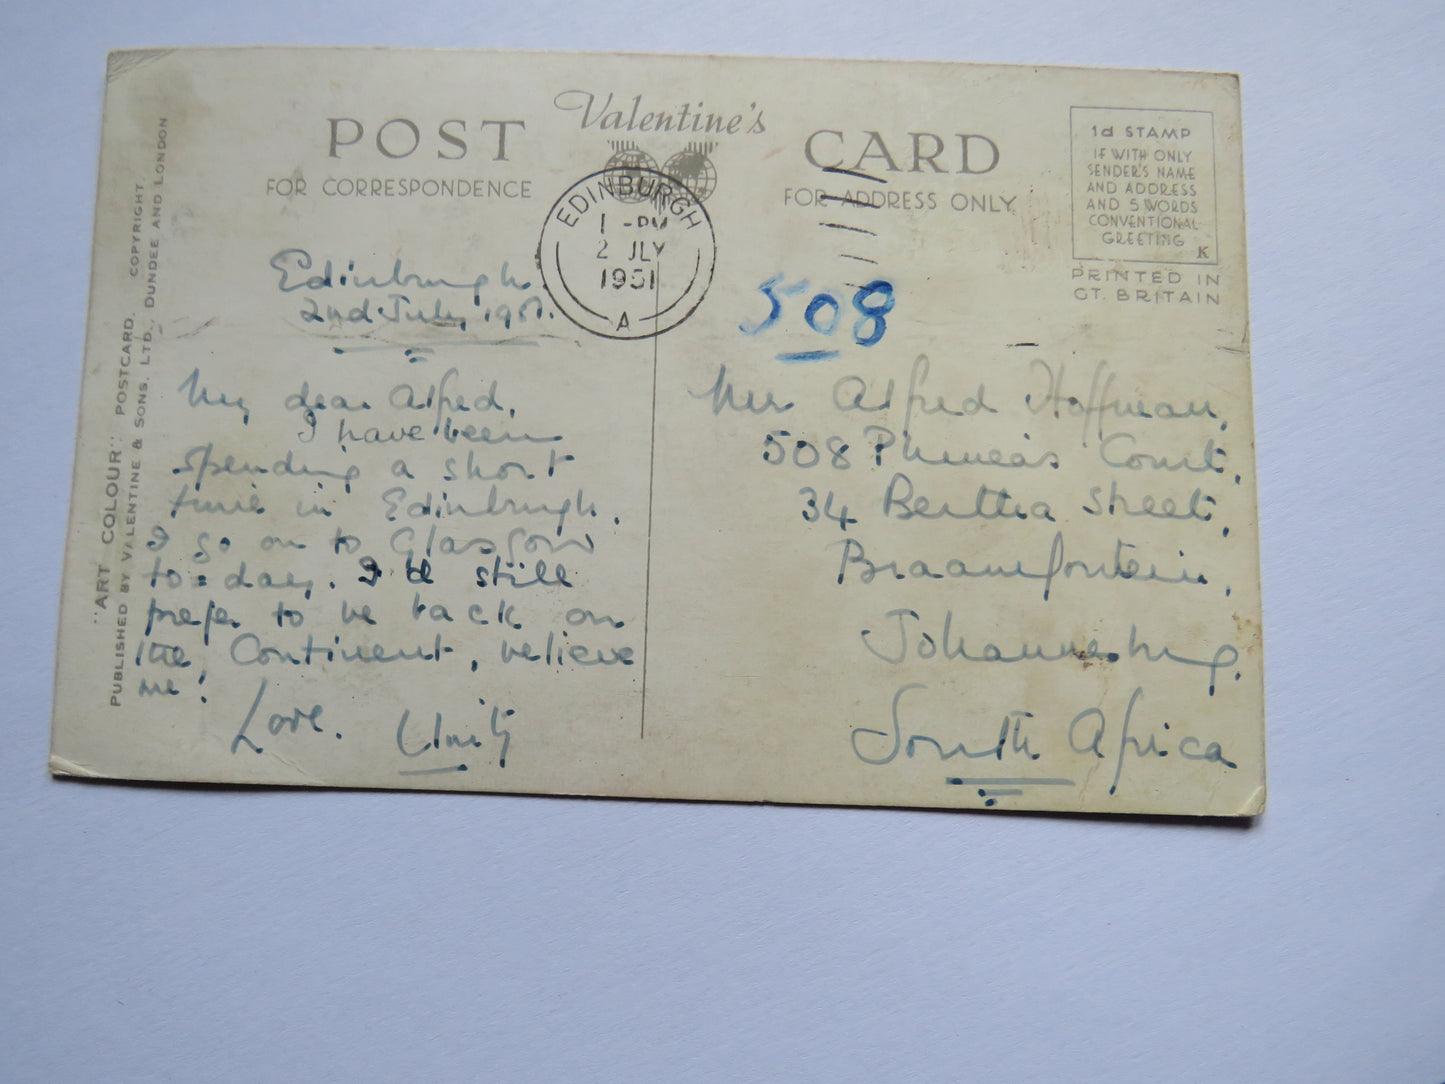 Valentine's
POST CARD
FOR CORRESPONDENCE
FOR ADDRESS ONLY
1d STAMP
IF WITH ONLY
SENDER'S NAME
AND ADDRESS
AND 5 WORDS
CONVENTIONAL
GREETING
K
PRINTED IN
GT. BRITAIN
EDINBURGH
1 - PM
2 JLY
1951
A
"ART COLOUR" POSTCARD. COPYRIGHT.
PUBLISHED BY VALENTINE & SONS. LTD., DUNDEE AND LONDON
Edinburgh.
2nd July, 1951.
My dear Alfred,
I have been
spending a short
time in Edinburgh.
I go on to Glasgow
to-day. I'd still
prefer to be back on
the Continent, believe
me!
Love. Unity
508
Mr Alfred Hoffman,
508 Phineas Court,
34 Bertha Street,
Braamfontein,
Johannesburg.
South Africa